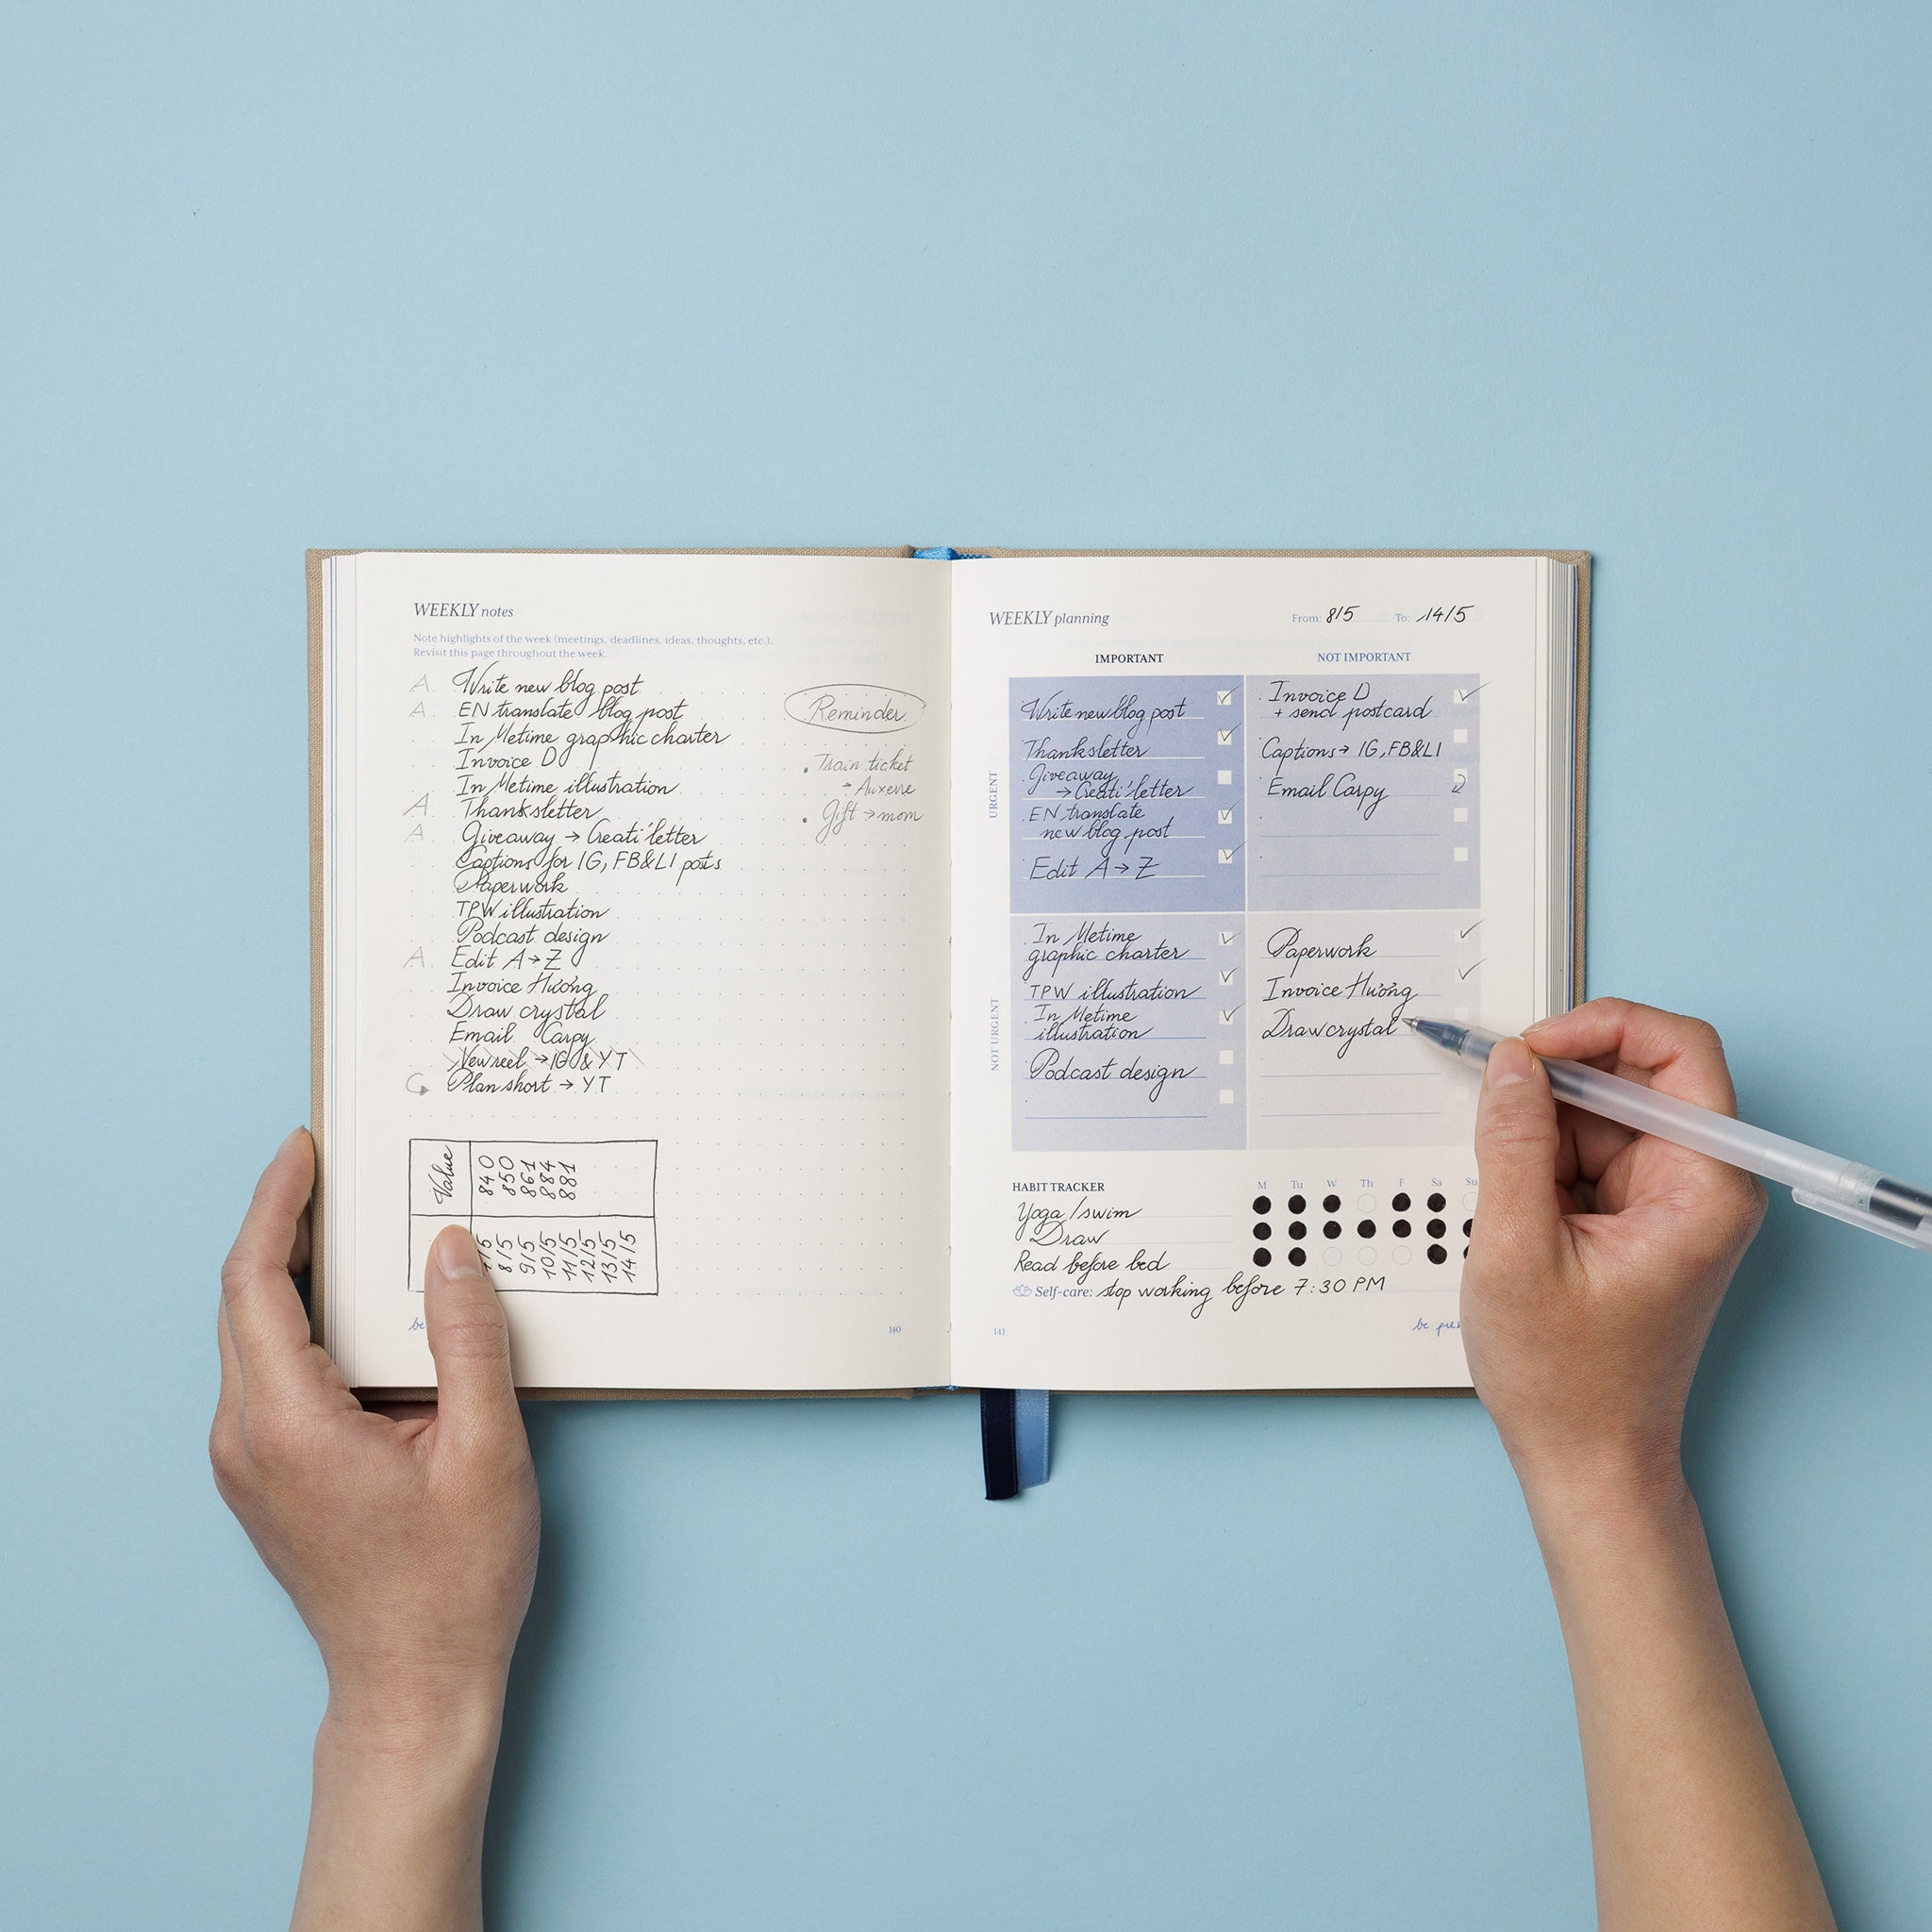 WEEKLY notes
Note highlights of the week (meetings, deadlines, ideas, thoughts, etc.).
Revisit this page throughout the week.
A. Write new blog post
A. EN translate blog post
In Metime graphic charter
Invoice D
In Metime illustration
A. Thanksletter
A. Giveaway → Creati'letter
Captions for IG, FB&LI posts
Paperwork
TPW illustration
Podcast design
A. Edit A→Z
Invoice Hương
Draw crystal
Email Carpy
New reel → IG & YT
Plan short → YT
Reminder
Train ticket
→ Auxerre
Gift → mom
Value
840
850
861
884
881
8/5
9/5
10/5
11/5
12/5
13/5
14/5
be
140
WEEKLY planning
From: 8/5 To: 14/5
IMPORTANT
NOT IMPORTANT
URGENT
Write new blog post
Thanksletter
Giveaway
→ Creati'letter
EN translate
new blog post
Edit A→Z
Invoice D
+ send postcard
Captions → IG, FB&LI
Email Carpy
NOT URGENT
In Metime
graphic charter
TPW illustration
In Metime
illustration
Podcast design
Paperwork
Invoice Hương
Draw crystal
HABIT TRACKER M Tu W Th F Sa Su
Yoga / swim
Draw
Read before bed
Self-care: stop working before 7:30 PM
141
be